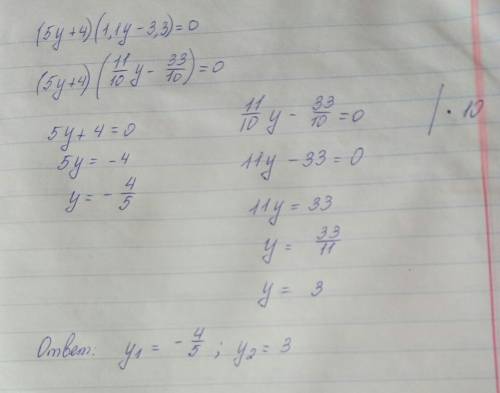 (5y+4)(1,1y-3,3)=0
(5y+4)(11/10 y - 33/10)=0
5y+4=0
5y=-4
y=-4/5
11/10 y - 33/10 =0 | · 10
11y-33=0
11y=33
y= 33/11
y= 3
Ответ: y₁ = -4/5; y₂=3